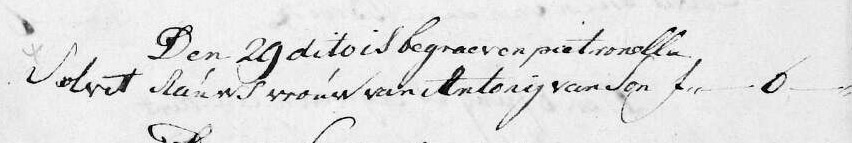 Den 29 dito is begraeven pietronella
Solvit klaúws vroúw van Antonij van Son f — 6 —